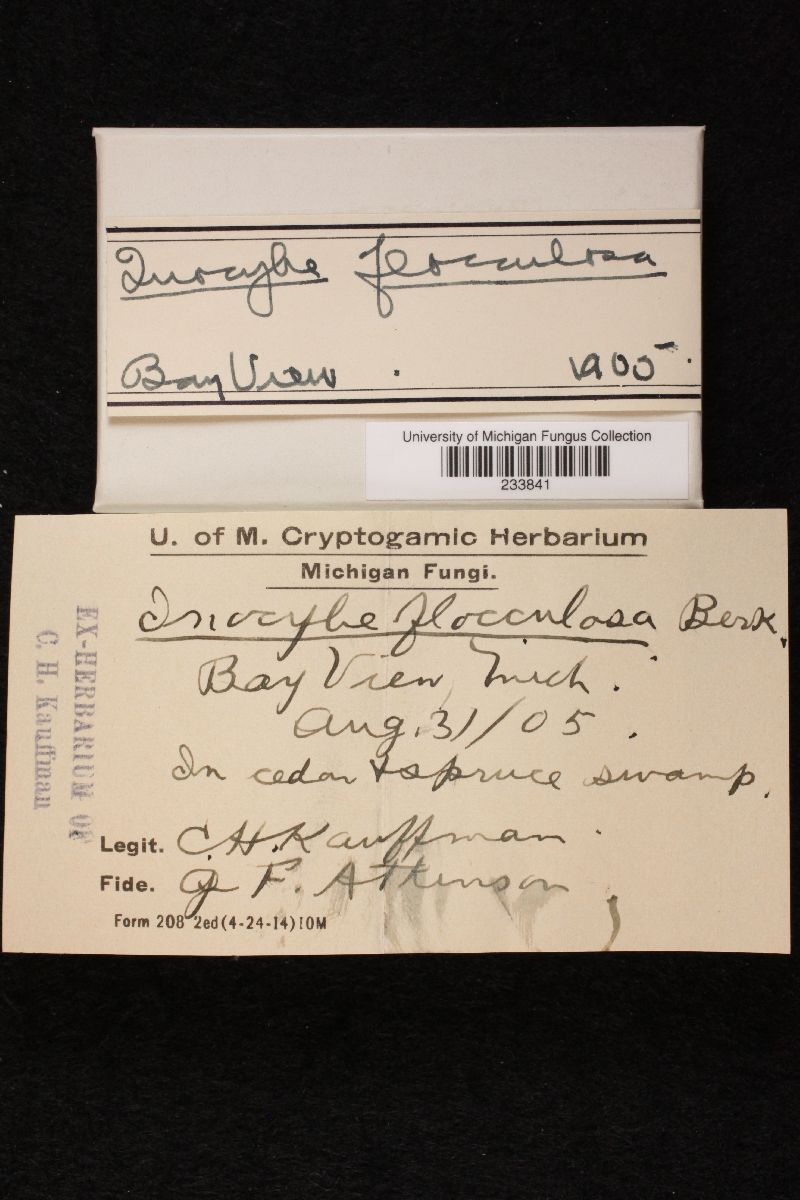 Inocybe flocculosa
Bay View . 1905.
University of Michigan Fungus Collection
233841
U. of M. Cryptogamic Herbarium
Michigan Fungi.
Inocybe flocculosa Berk.
Bay View, Mich.
Aug. 31/05.
In cedar & spruce swamp.
Legit. C. H. Kauffman.
Fide. G F. Atkinson
Form 208 2ed(4-24-14)10M
EX-HERBARIUM OF
C. H. Kauffman